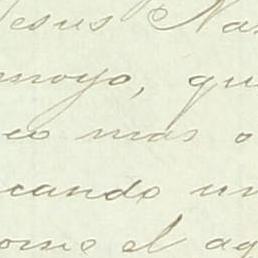 Jesus Na
moyo, qu
eo mas o
cando un
ome el ag